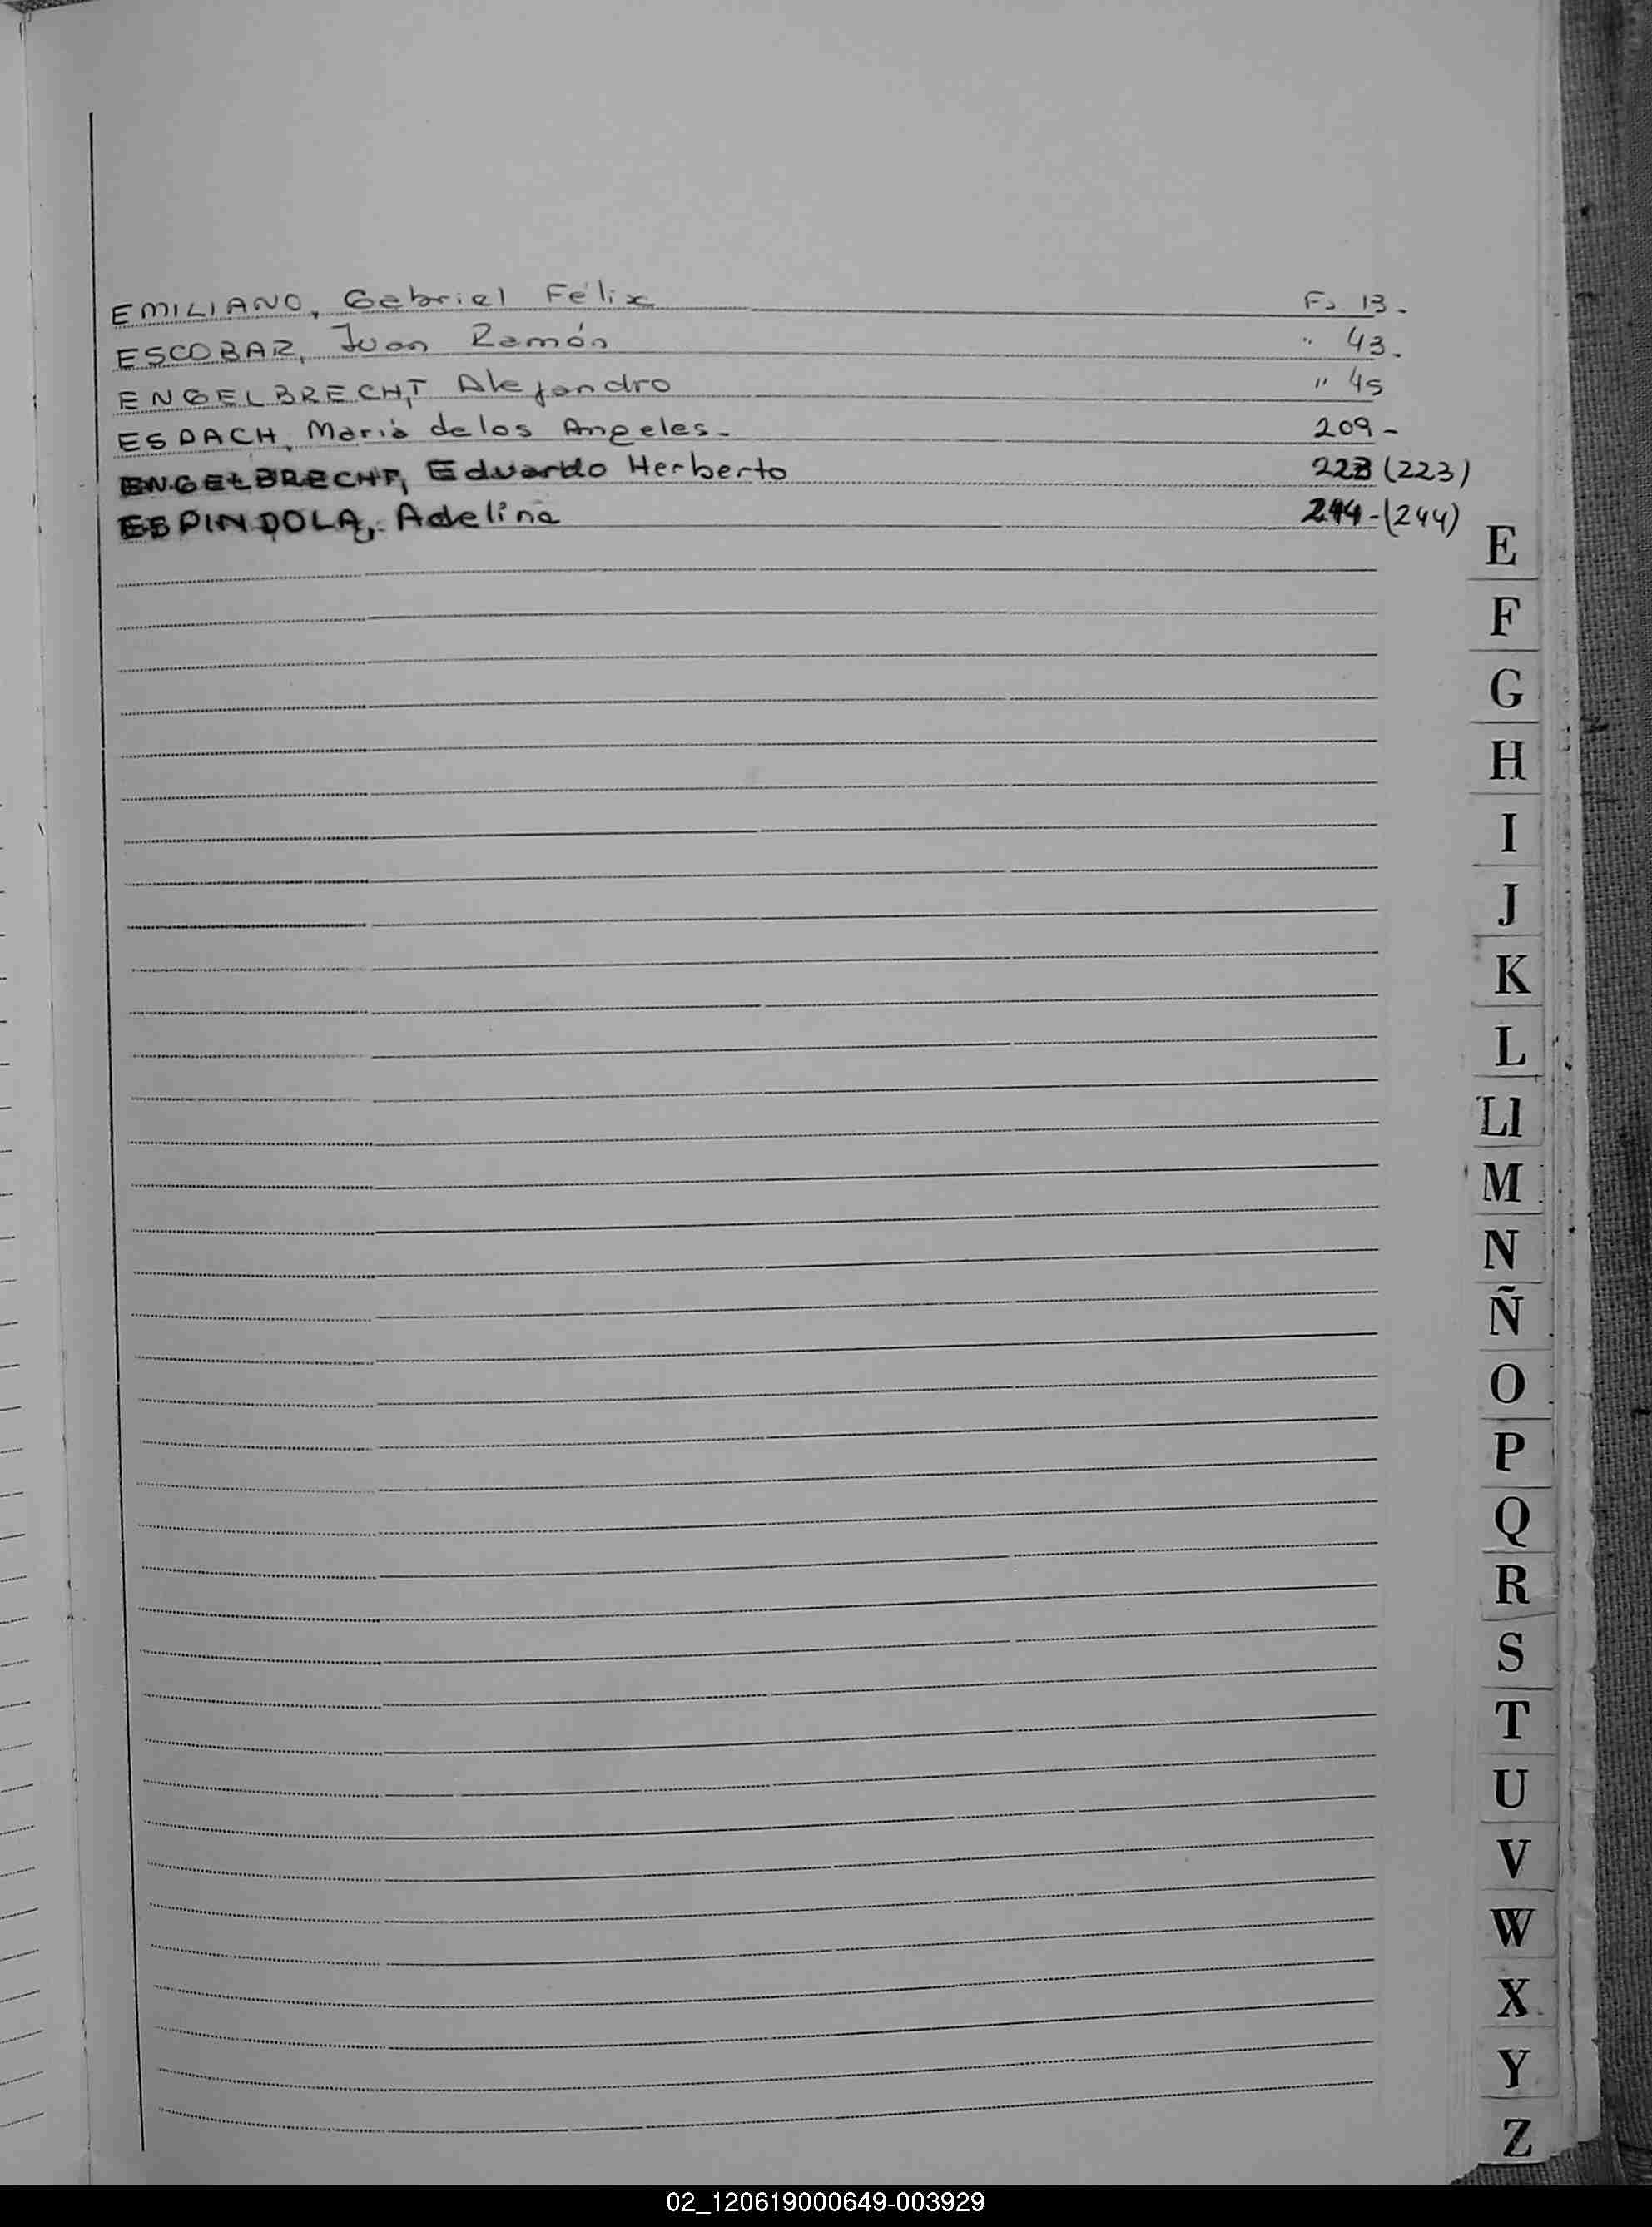 EMILIANO, Gabriel Félix Fs 13.
ESCOBAR, Juan Ramón " 43.
ENGELBRECHT, Alejandro " 45
ESPACH, Maria de los Angeles. 209-
ENGELBRECHT, Eduardo Herberto 223 (223)
ESPINDOLA, Adelina 244-(244)
E
F
G
H
I
J
K
L
Ll
M
N
Ñ
O
P
Q
R
S
T
U
V
W
X
Y
Z
02_120619000649-003929